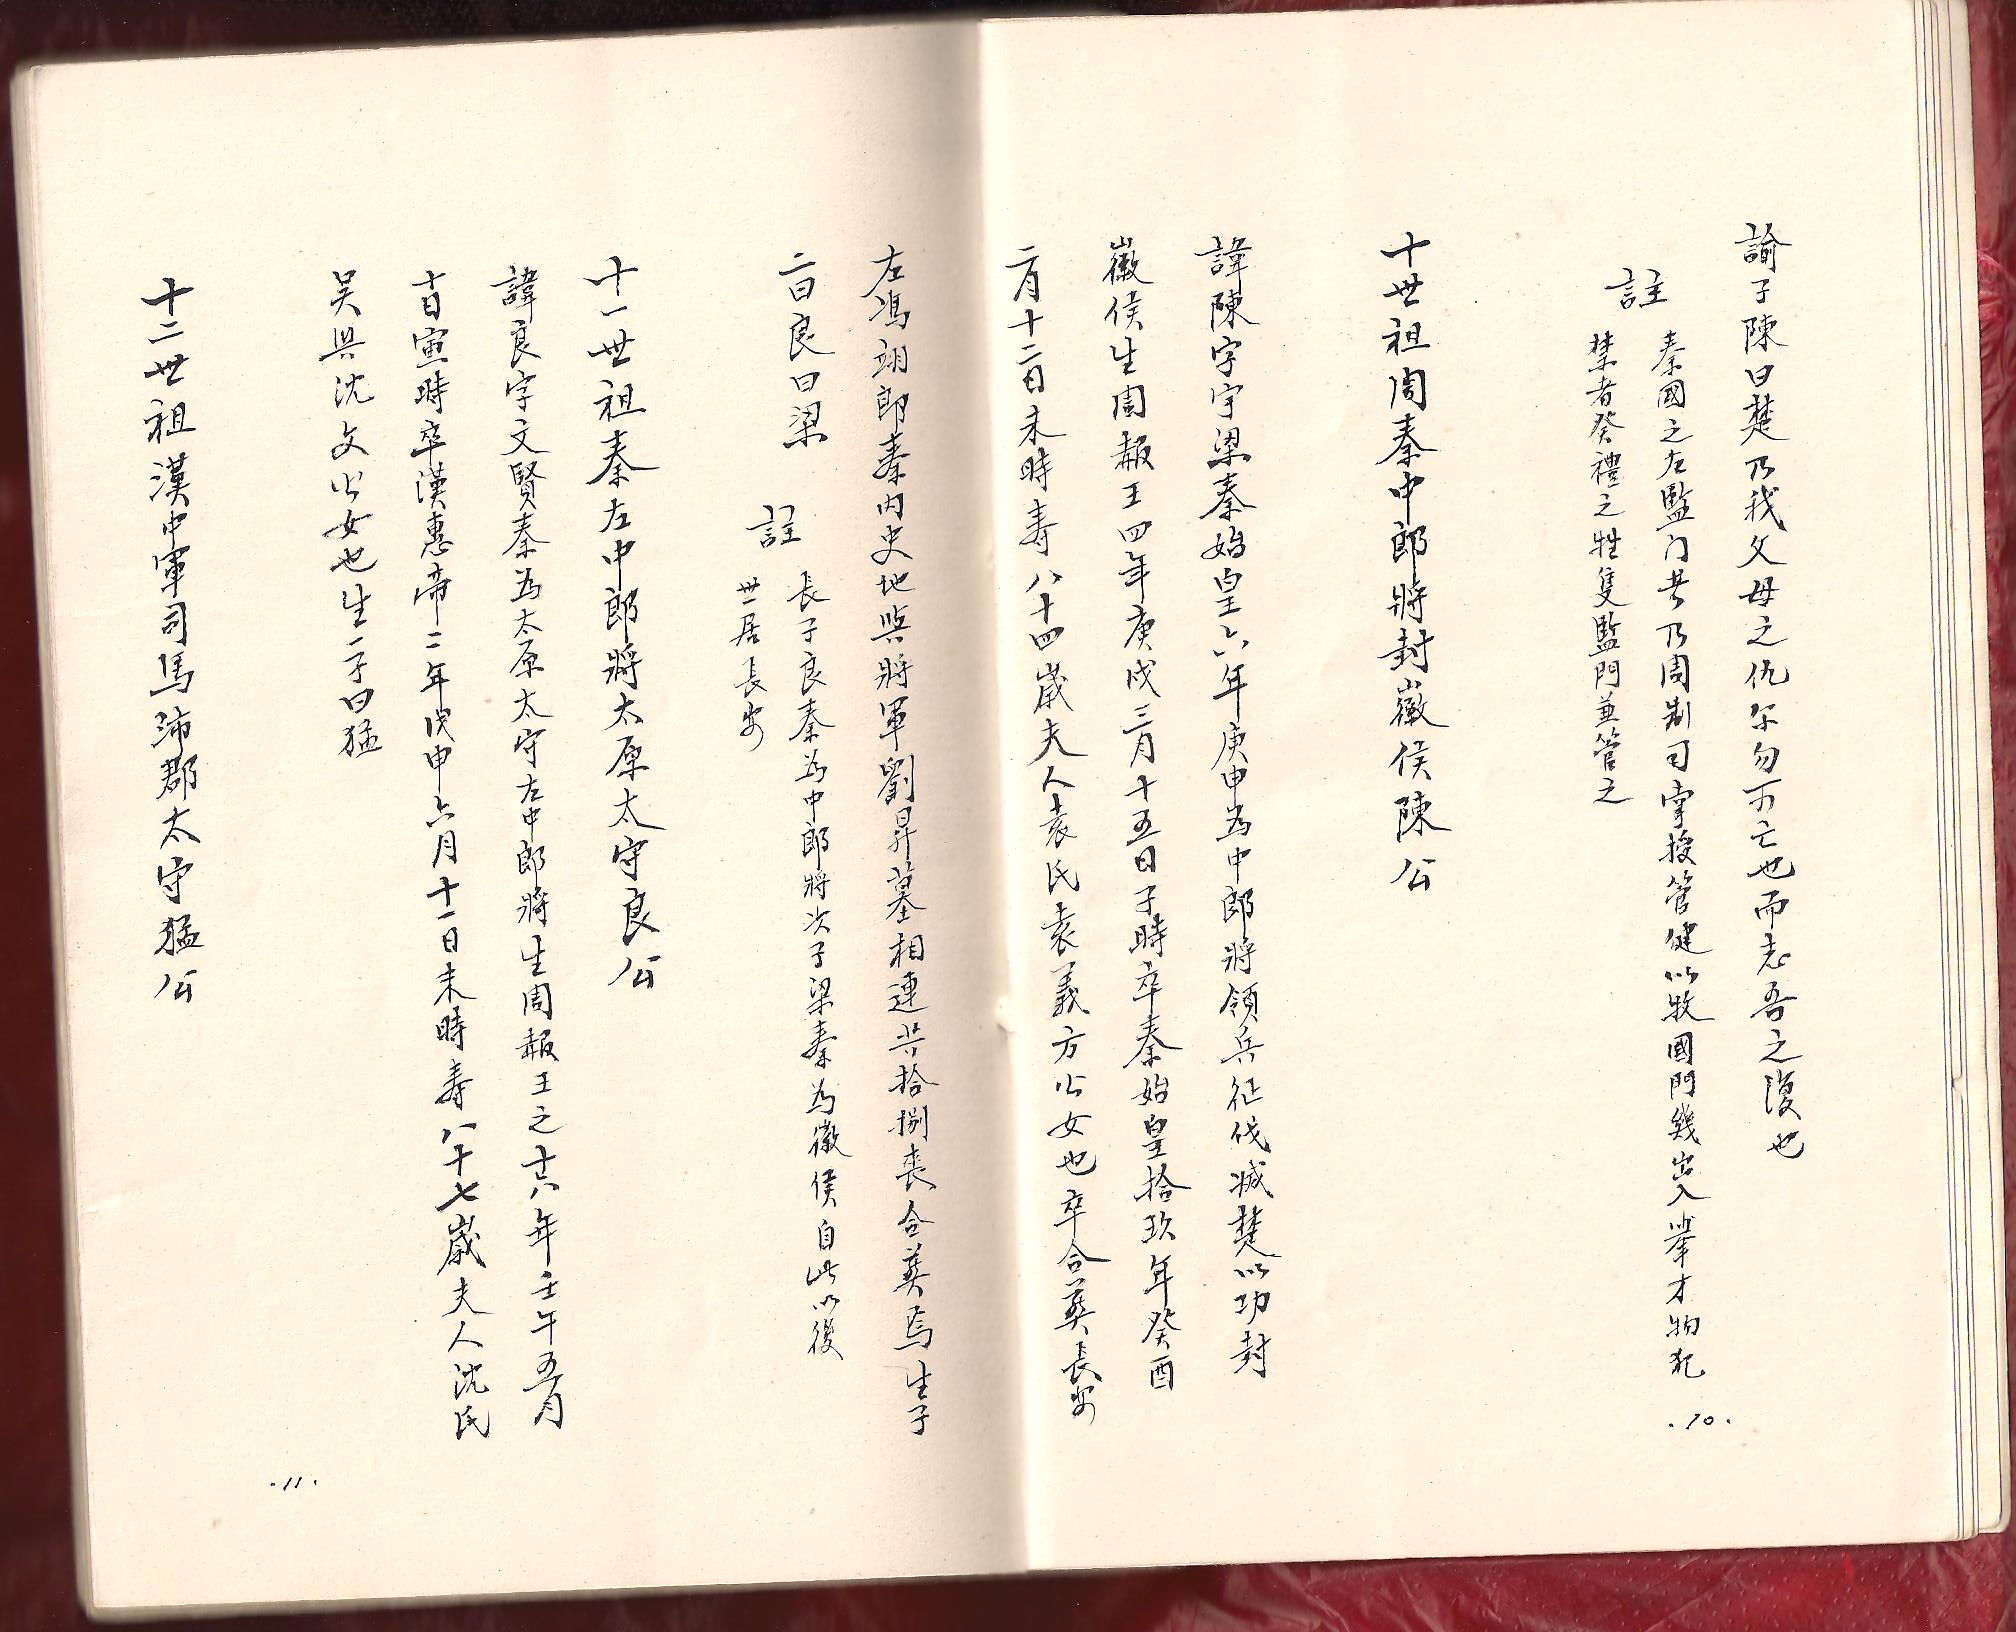 諭子陳曰楚乃我父母之仇尔勿可亡也而志吾之復也
註
秦國之左監门者乃周制司掌授管健以牧國門幾出入舉才物犯
禁者癸禮之牲隻監門並管之
十世祖周秦中郎將封徽侯陳公
諱陳字宇梁秦始皇六年庚申為中郎將領兵征伐滅楚以功封
徽侯生周赧王四年庚戌三月十五日子時卒秦始皇拾玖年癸酉
二月十二日未時寿八十四歲夫人袁氏袁義方公女也卒合葬長安
·10·
左馮翊郎秦内史地與將軍劉昇墓相連共拾捌丧合葬焉生子
二曰良曰梁
註
長子良秦為中郎將次子梁秦為徽侯自此以後
世居長安
十一世祖秦左中郎將太原太守良公
諱良字文賢秦為太原太守左中郎將生周赧王之廿八年壬午五月
十日寅時卒漢惠帝二年戊申六月十一日未時寿八十七歲夫人沈氏
吴興沈文公女也生一子曰猛
十二世祖漢中軍司馬沛郡太守猛公
·11·